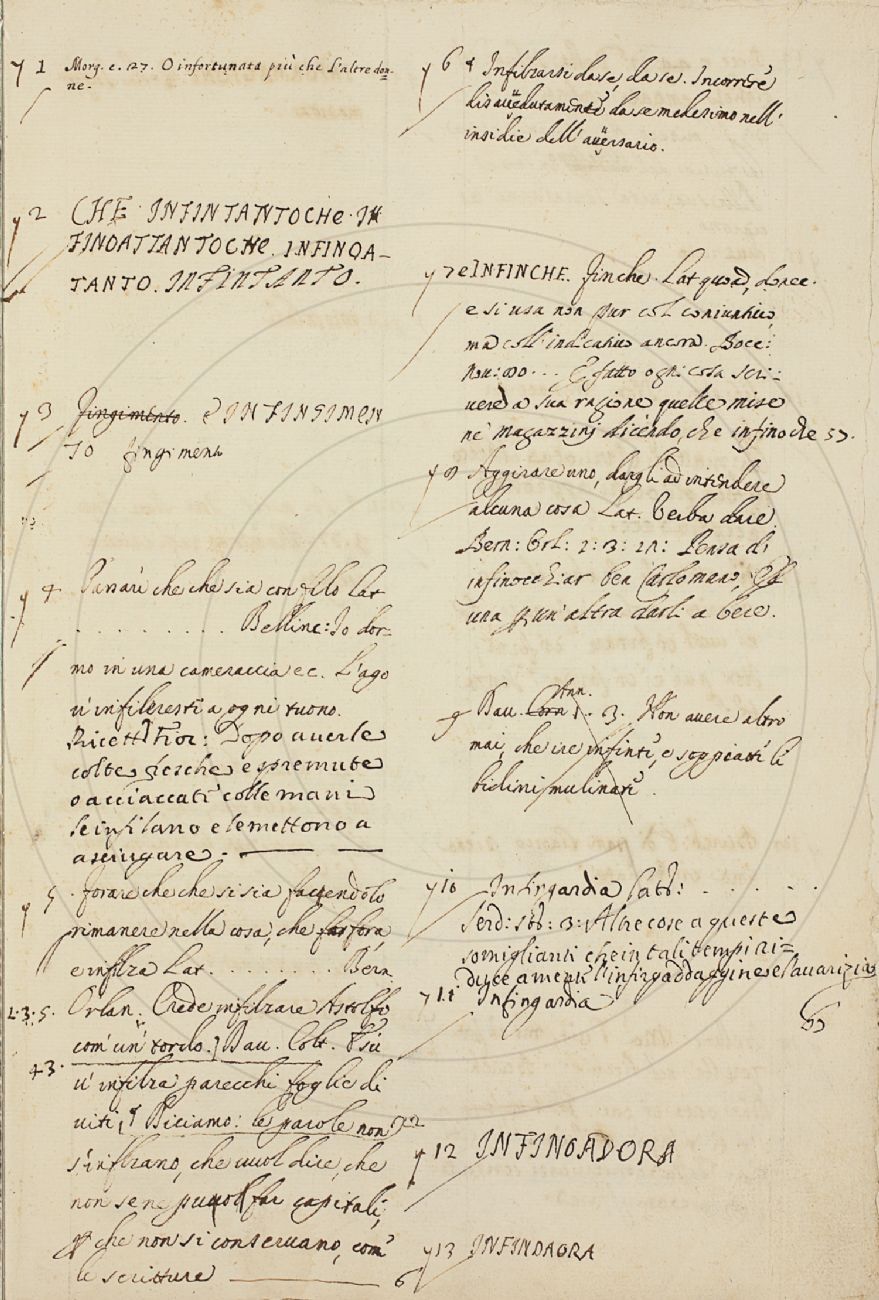 y 1 Morg. c. 27. O infortunata più che l'altre don-
ne.
y 2 CHE INFINTANTOCHE. IN
FINOATTANTOCHE. INFINOA-
TANTO. INFINTANTO.
y 3 Fingimento. e INFINGIMEN
TO fingimento
y 4 che che sia con filo Lat
. . . . . . . . . . Bellinc: Io dor-
mo in una cameraccia ec. L'ago
v'infileresti a ogni tuono.
Ricett. Fior: Dopo averle
colte fresche e spremute
o acciaccate colle mani
le infilano e le mettono a
asciugare.
y 5. Forare che che si sia facendolo
rimanere nella cosa, che fora,
e infilza Lat. . . . . . . . Bern
2.3.5. Orlan. Crede infilzare Astolfo
com' un tordo.] Dav. Colt. E su
43. v' infilza parecchi foglie di
viti, Diciamo: le parole non 722
s'infilzano, che vuol dire, che
non se ne far capitali,
che non si conservano, com'
le scritture 6
y 6 Infilzarsi da se, da se. Incorrere
disavvedutamente da se medesimo nell'
insidie dell' avversario.
y 7 e INFINCHE. Finche. Lat quoad, donec.
e si usa non pur col coniuntivo
ma coll' indicativo ancora. Bocc:
nov: . . . E fatto ogni cosa scri-
vere a sua ragione quelle mise
ne' magazzini dicendo, che infino che 57.
y Aggirare uno, dargli ad intendere
alcuna cosa Lat. Verba dare
Bern: Orl: 2: 3: Pensa di
infinocchiar ben Carlo mano, Ess
una altra darli a bere.
Ann.
9 Dav. Corn 1. 3. Non avere altro
mai, che ire infinti, e soppiatti li
bidini mulinati.
y 10 Infingardia Latt: . . . . .
Serd: stor: 3: Altre cose a queste
somiglianti che in tali tempi ri-
duce a mente l'infingardaggine e l'avarizia
y 11 Infingardia
y 12 INFINOADORA
y 13 INFINDAORA